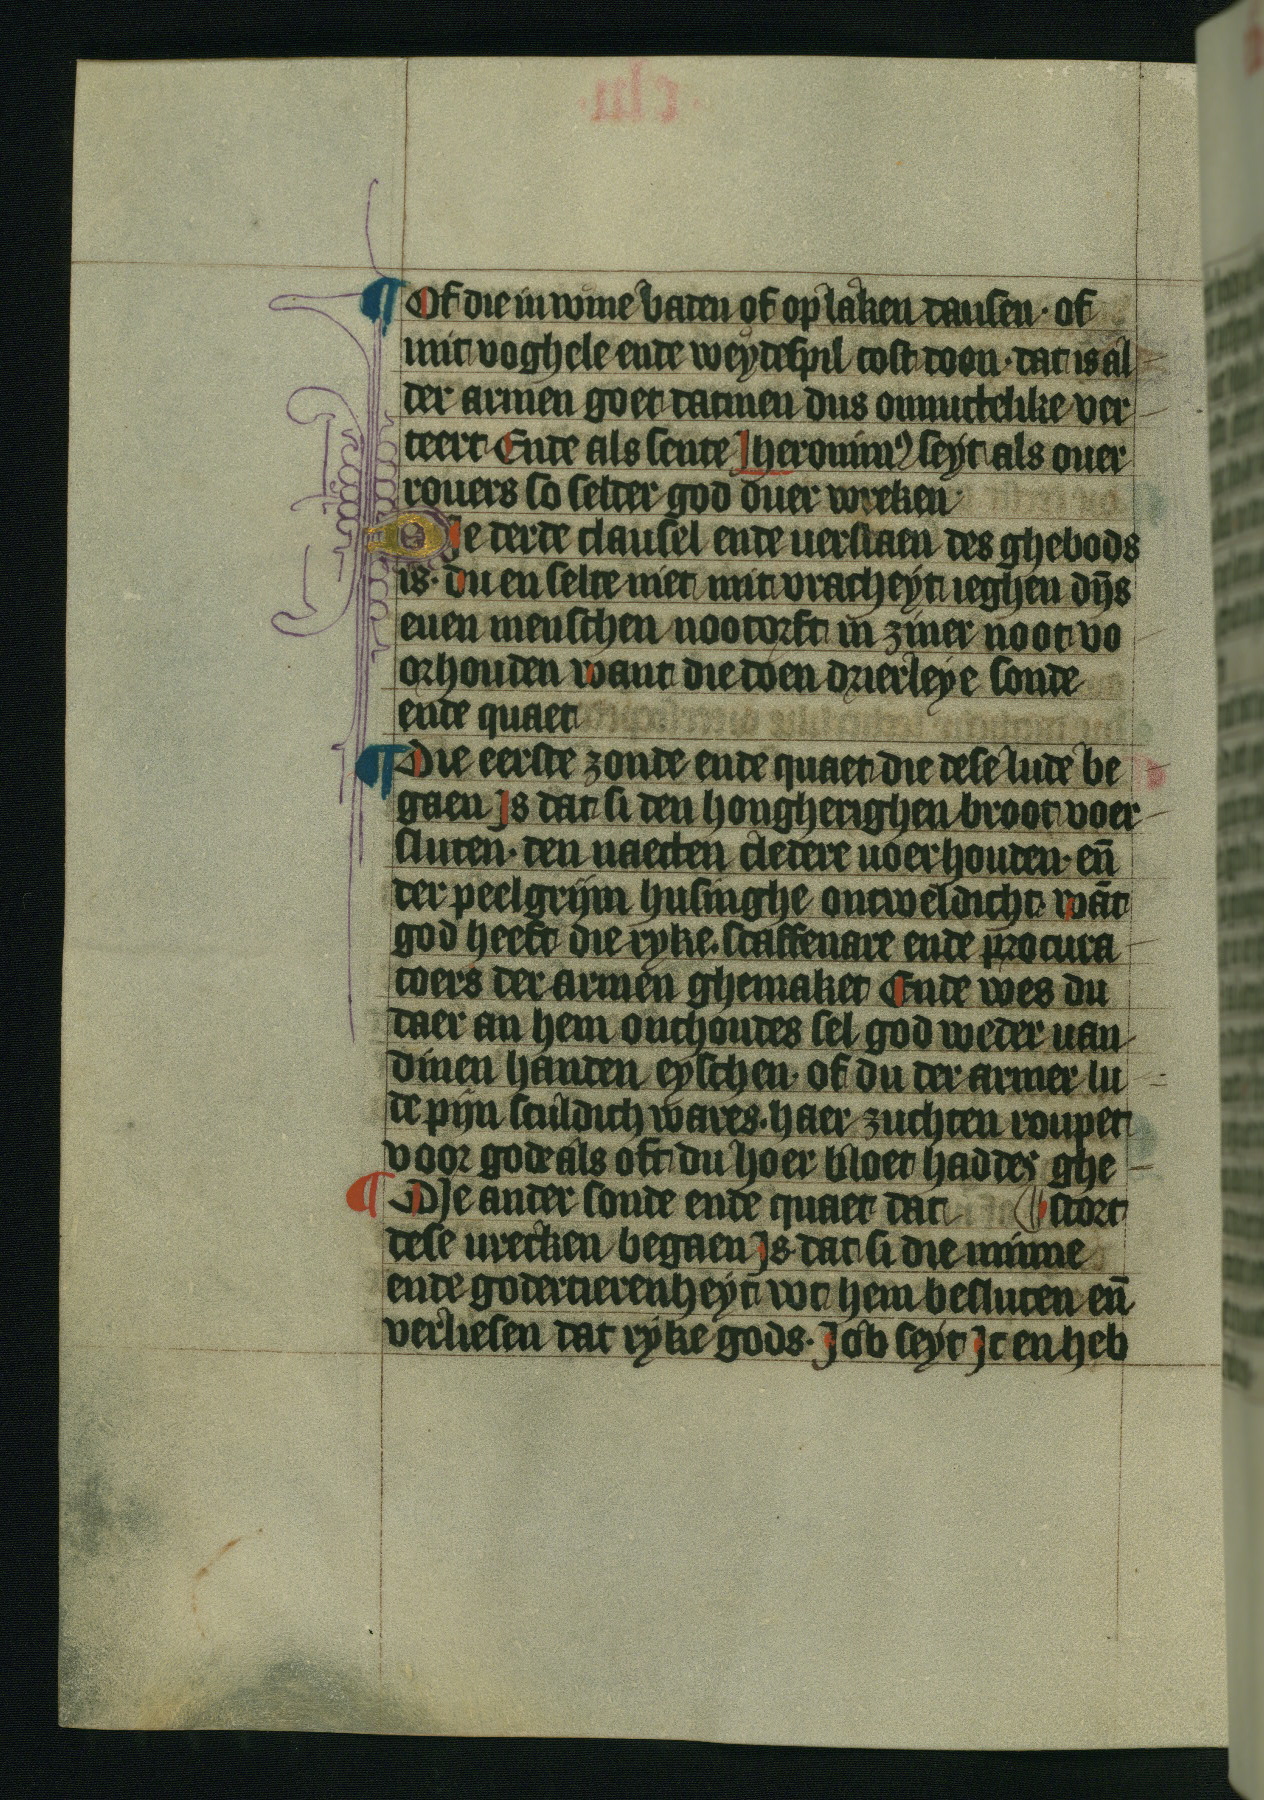 ¶ Of die in wine baden of op laken dansen · of
mit voghele ende weydespil cost doon · dat is al
der armen goet datmen dus onnuttelike ver
teert Ende als sente Jheronimꝰ seyt als ouer
rouers so selder god ouer wreken ·
Die derde clausel ende uerstaen des ghebods
is · du en selte niet mit vracheyt ieghen dyns
euen menschen nootorft in ziner noot vo
orhouden want die doen drierleye sonde
ende quaet
¶ Die eerste zonde ende quaet die dese lude be
gaen Js dat si den hongherighen broot voer
sluten · den naecten cledere uoerhouden · en̄
der peelgrijm husinghe ontweldicht · wāt
god heeft die ryke · staffenare ende procura
toers der armen ghemaket Ende wes du
daer an hem onthoudes sel god weder uan
dinen handen eyschen · of du der armer lu
de pijn sculdich wares · haer zuchten roupet
voor gode als oft du hoer bloet haddes ghe
¶ DJe ander sonde ende quaet dat ¶ stort
dese urecken begaen Js dat si die minne
ende godertierenheyt vot hem besluten en̄
verliesen dat ryke gods · Job seyt Jc en heb